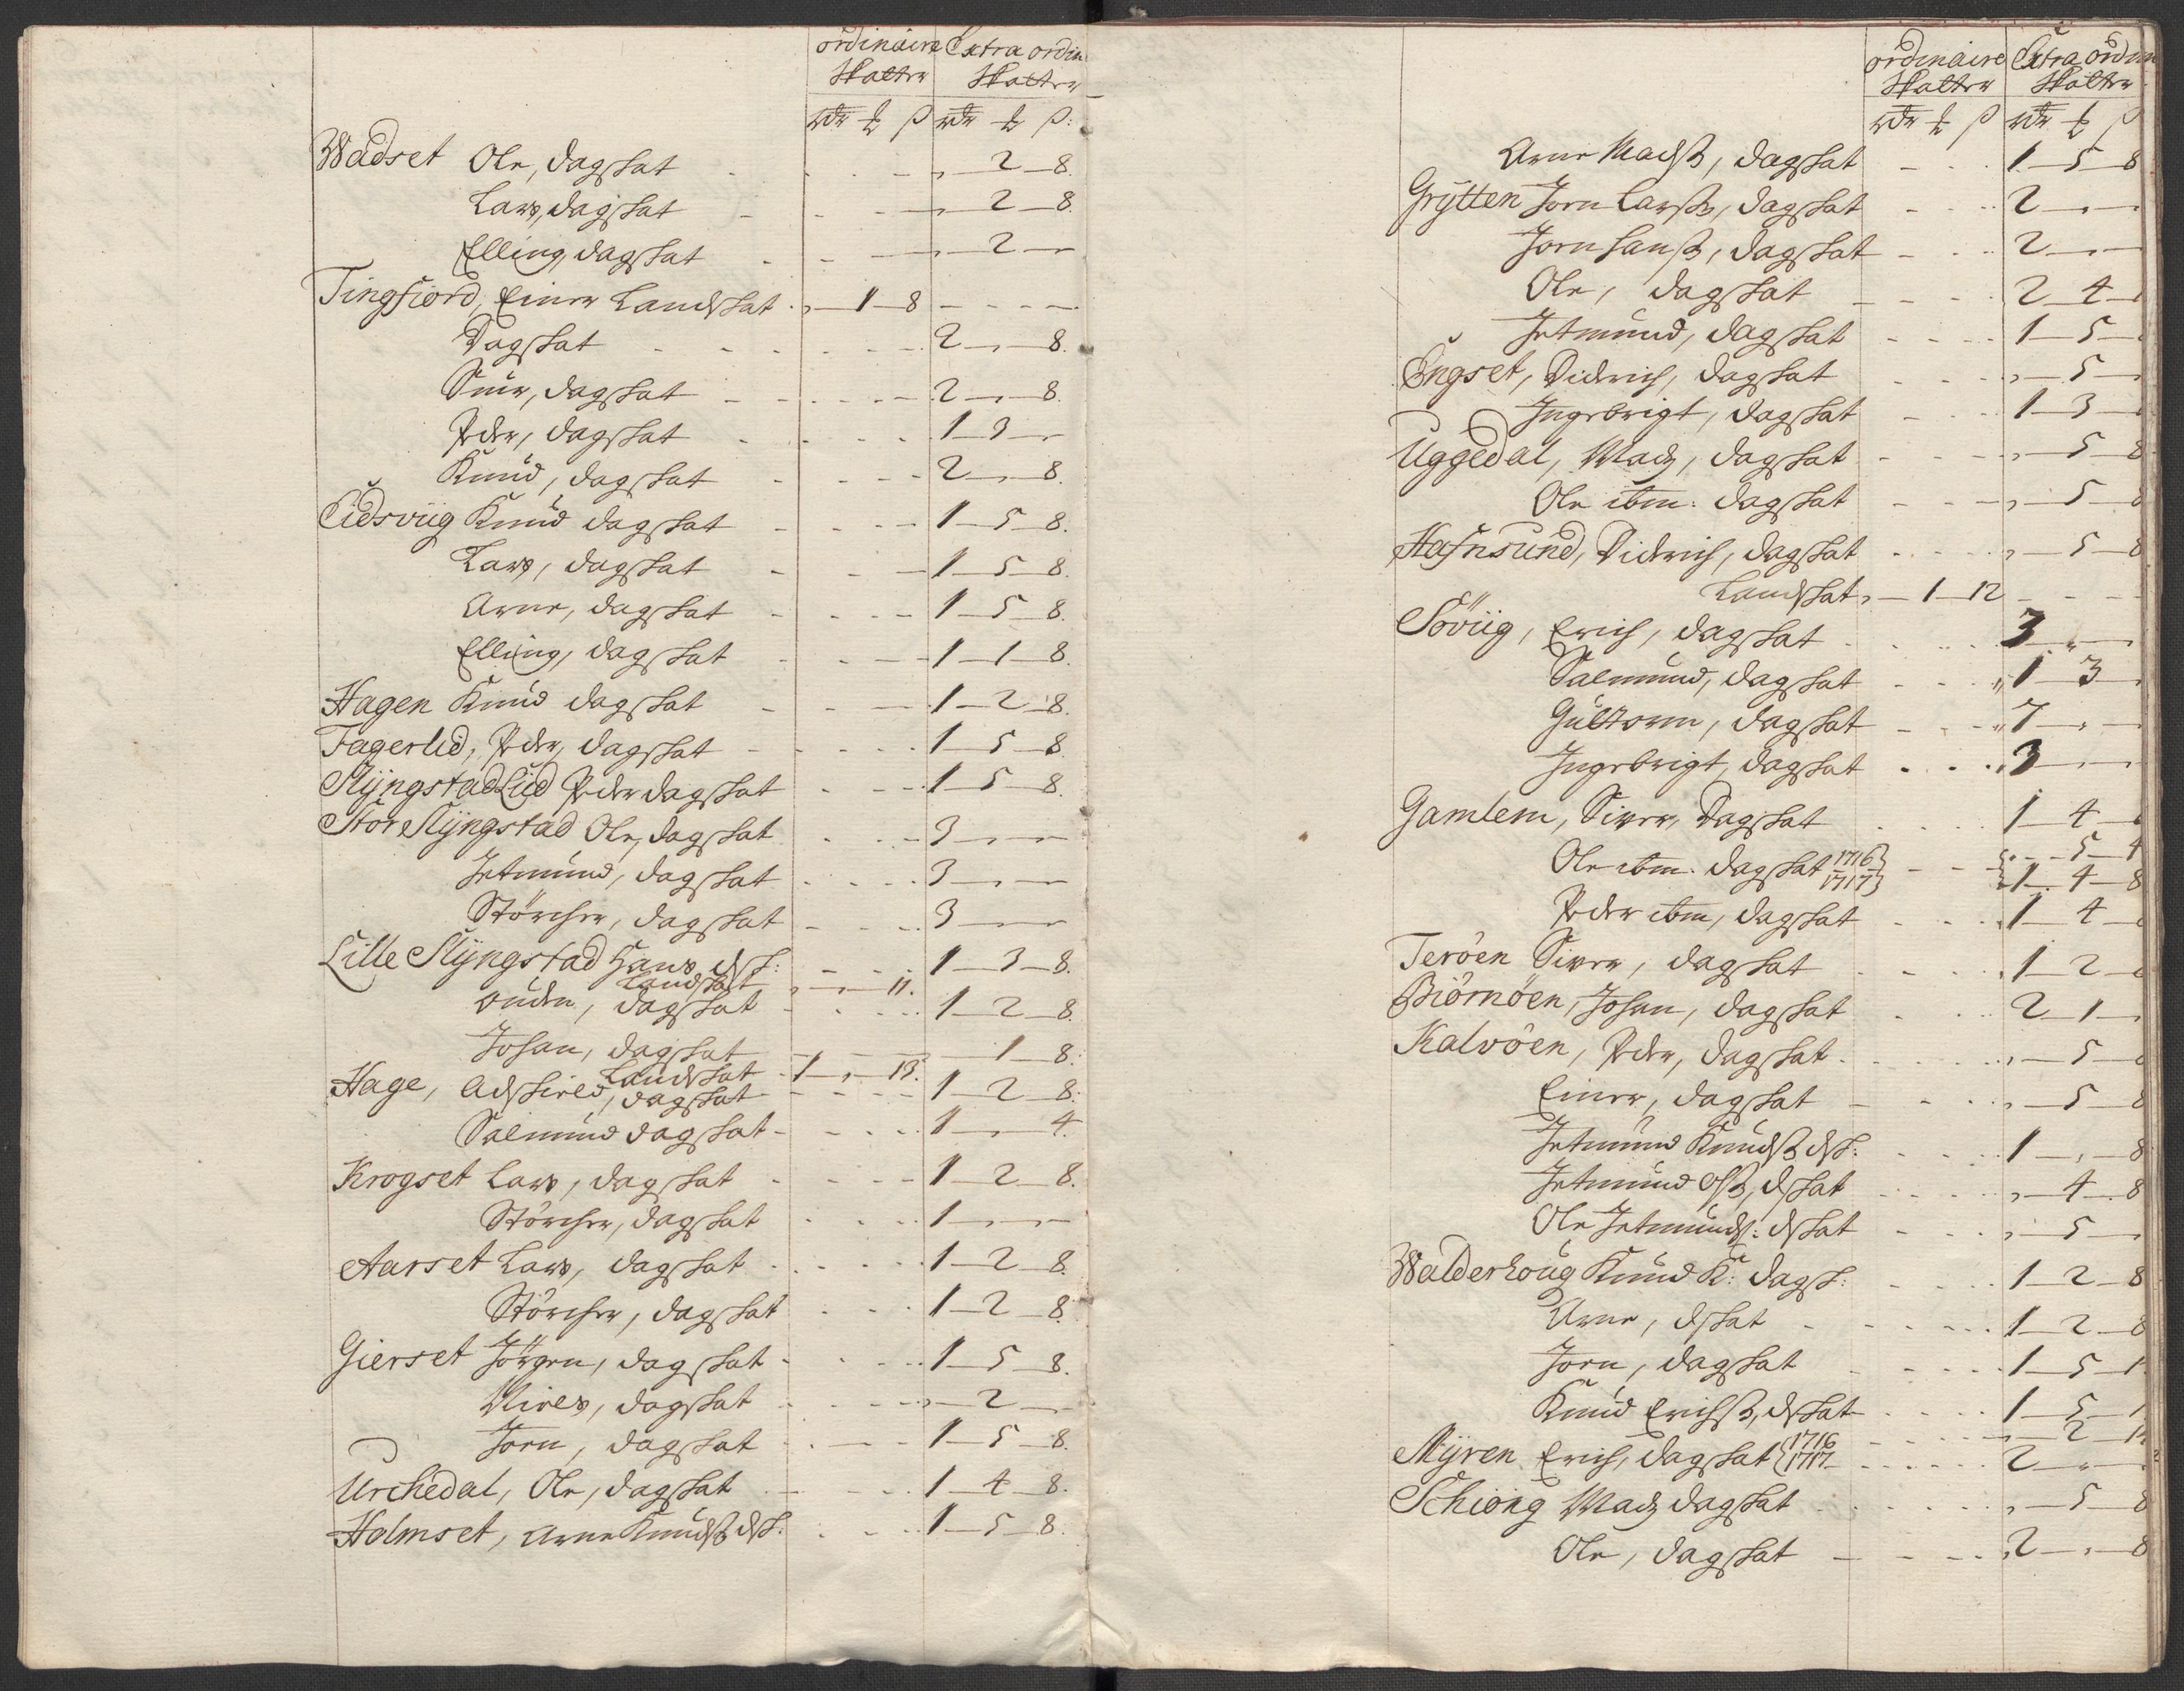 ordinaire Extra ordin
Skatter Skatter
rdr ₰ ß rdr ₰ ß:
Wadset Ole, dagskat - - 2 - 8.
Lars, dagskat - - 2 - 8.
Elling dagskat - - 2 -
Tingfiord, Einer Landskat - 1 - 8 - - - -
Dagskat - - - 2 - „ - 8.
Siur, dagskat - - 2 - „ - 8.
Peder, dagskat - - 1 - 3 -
Knud, dagskat - - 2 - „ - 8.
Eidsviig Knud dagskat - 1 - 5 - 8.
Lars, dagskat - - 1 - 5 - 8.
Arne, dagskat - - 1 - 5 - 8.
Elling, dagskat - - 1 - 1 - 8.
Hagen Knud dagskat - - 1 - 2 - 8.
Fagerlid, Peder, dagskat - 1 - 5 - 8
Slÿngstadliid Peder dagskat - 1 - 5 - 8.
Stor Slÿngstad Ole, dagskat - 3 - „ -
Jetmund, dagskat - 3 - „ -
Störcher, dagskat - 3 - „ -
Lille Slÿngstad Hans dsk: - 1 - 3 - 8.
Landskat „ - „ - 11.
dagskat - 1 - 2 - 8.
Johan, dagskat - 1 - 8:
Landskat - 1 - „ - 13.
Hage, dagskat - 1 - 2 - 8:
Salmund dagskat - 1 - „ - 4.
Krogset Lars, dagskat - 1 - 2 - 8.
Störcher, dagskat - 1 - „ -
Aarset Lars, dagskat - 1 - 2 - 8.
Störcher, dagskat - 1 - 2 - 8.
Gierset Jörgen, dagskat - 1 - 5 - 8.
Nirls, dagskat - „ - 2 -
Jorn, dagskat - 1 - 5 - 8.
Urchedal, Ole, dagskat - 1 - 4 - 8.
Holmset, Arne Knudß dsk: - 1 - 5 - 8.
ordinaire Extra ordin
Skatter Skatter
rdr ₰ ß rdr ₰ ß
Arne Madß, dagskat - 1 - 5 - 8
Grÿtten Jorn Larß, dagskat - 2 - „ -
Jorn Hanß, dagskat - 2 - „ -
Ole, dagskat - 2 - 4 -
Jetmund, dagskat - 1 - 5 -
Engset, Didrich, dagskat - „ - 5 -
Ingebrigt, dagskat - 1 - 3 -
Uggedal, Mads, dagskat - „ - 5 - 8
Ole ibm. dagskat - „ - 5 - 8
Hafnsund, Didrich, dagskat - „ - 5 - 8
Landskat „ - 1 - 12 - - -
Söviig, Erich, dagskat - 3 - „ -
Salmund, dagskat - 1 - 3 -
Gultorm, dagskat - 7 - „ -
Ingebrigt, dagskat - 3 - „ -
Gamlem, Siver, Dagskat - 1 - 4 -
Ole ibm. dagskat {1716} - „ - 5 - 4
{1717} - 1 - 4 - 8
Peder ibm, dagskat - 1 - 4 -
Teröen Siver, dagskat - 1 - 2 -
Biörnöen, Johan, dagskat - 2 - 1 -
Kalvöen, Peder, dagskat - „ - 5 -
Einer, dagskat - „ - 5 - 8
Jetmund Knudß dsk: - 1 - „ - 8
Jetmund Olß, dskat - „ - 4 - 8
Ole Jetmunds: dskat - „ - 5 -
Walderhoug Knud K: dagsk: - 1 - 2 - 8
Arne, dskat - 1 - 2 - 8
Jorn, dagskat - 1 - 5 -
Knud Erichß, dskat - 1 - 5 -
Mÿren Erich, dagskat {1716 - 2 -
{1717 - 2 - „ -
Schiong Mads dagskat - „ - 5 - 8
Ole, dagskat - 2 - „ - 8